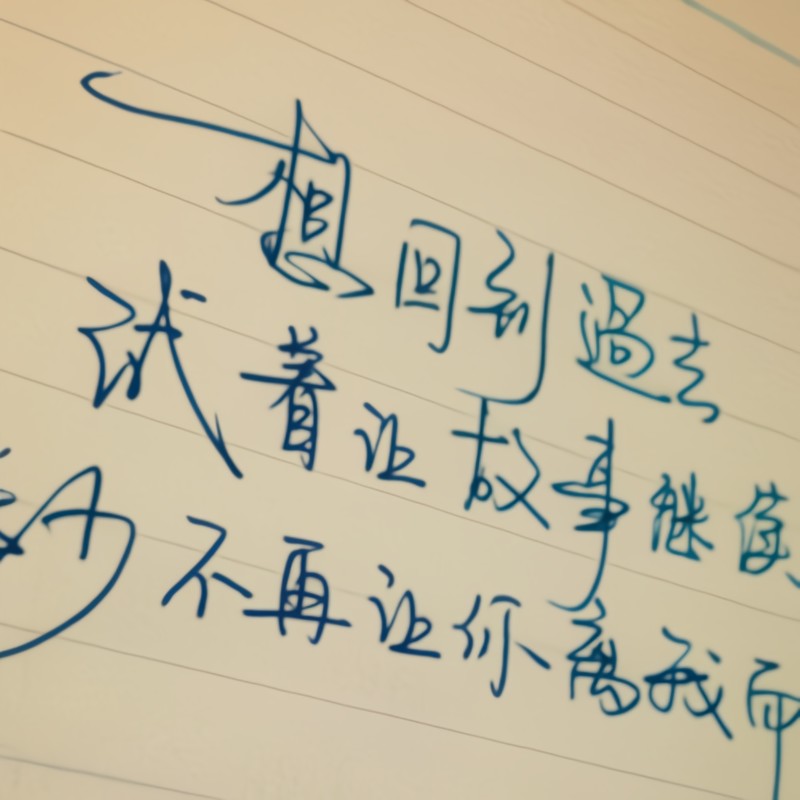 想回到過去
试着让故事继续
不再让你离我而